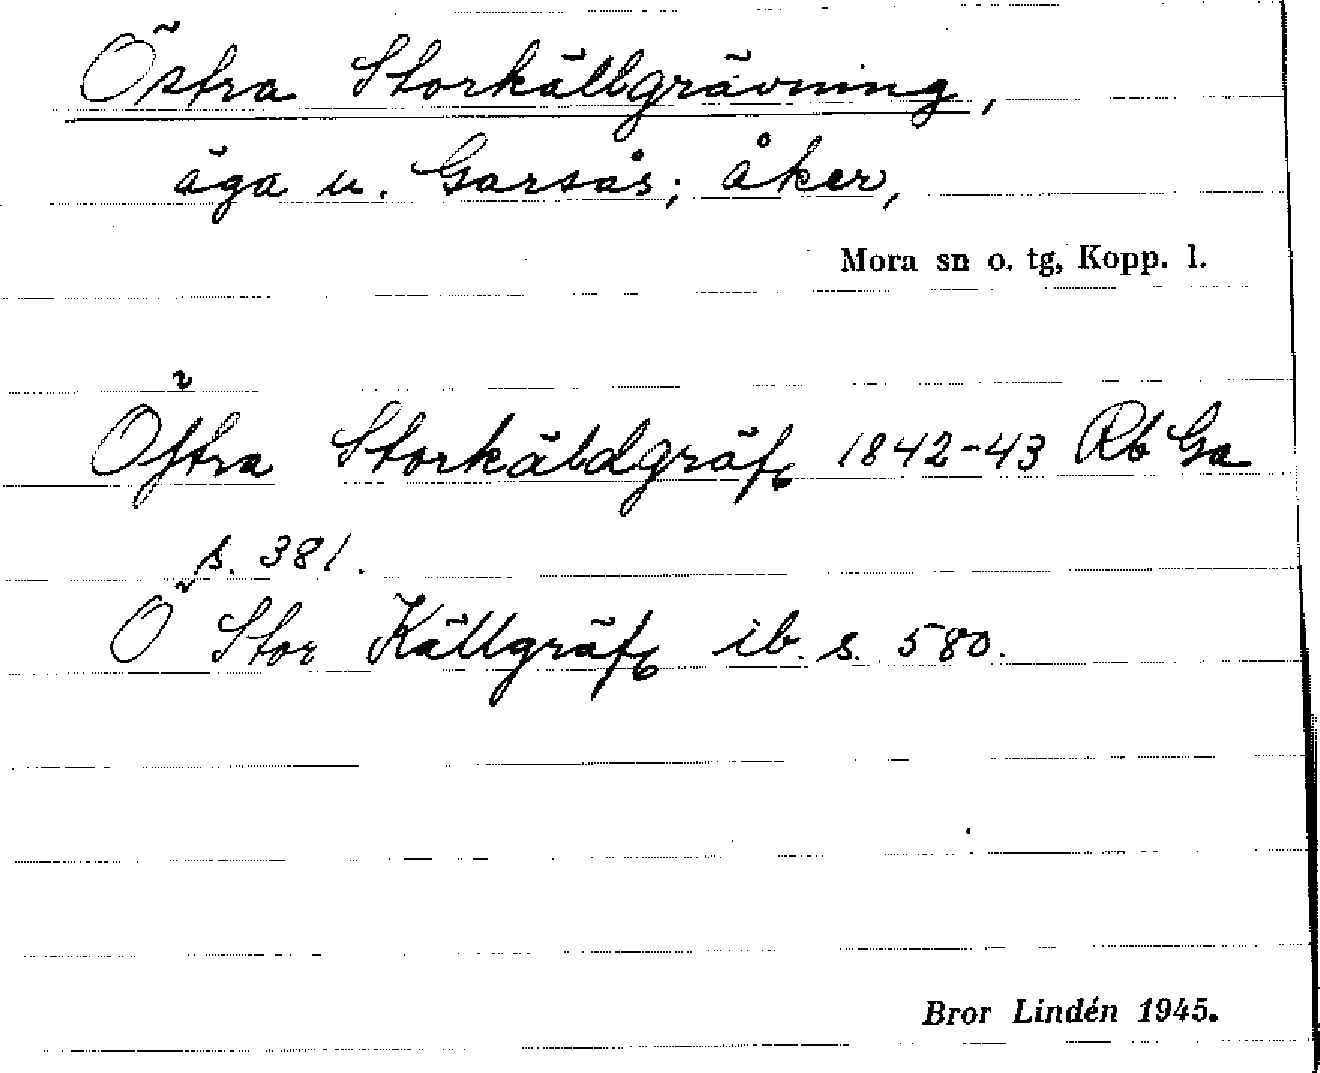 Östra Storkällgrävning,
äga u. Garsås; åker,
Mora sn o. tg, Kopp. l.
Öſtra Storkäldgräf, 1842-43 Rb Ga
s. 381.
Ö Stor Källgräf, ib. s. 580.
Bror Lindén 1945.